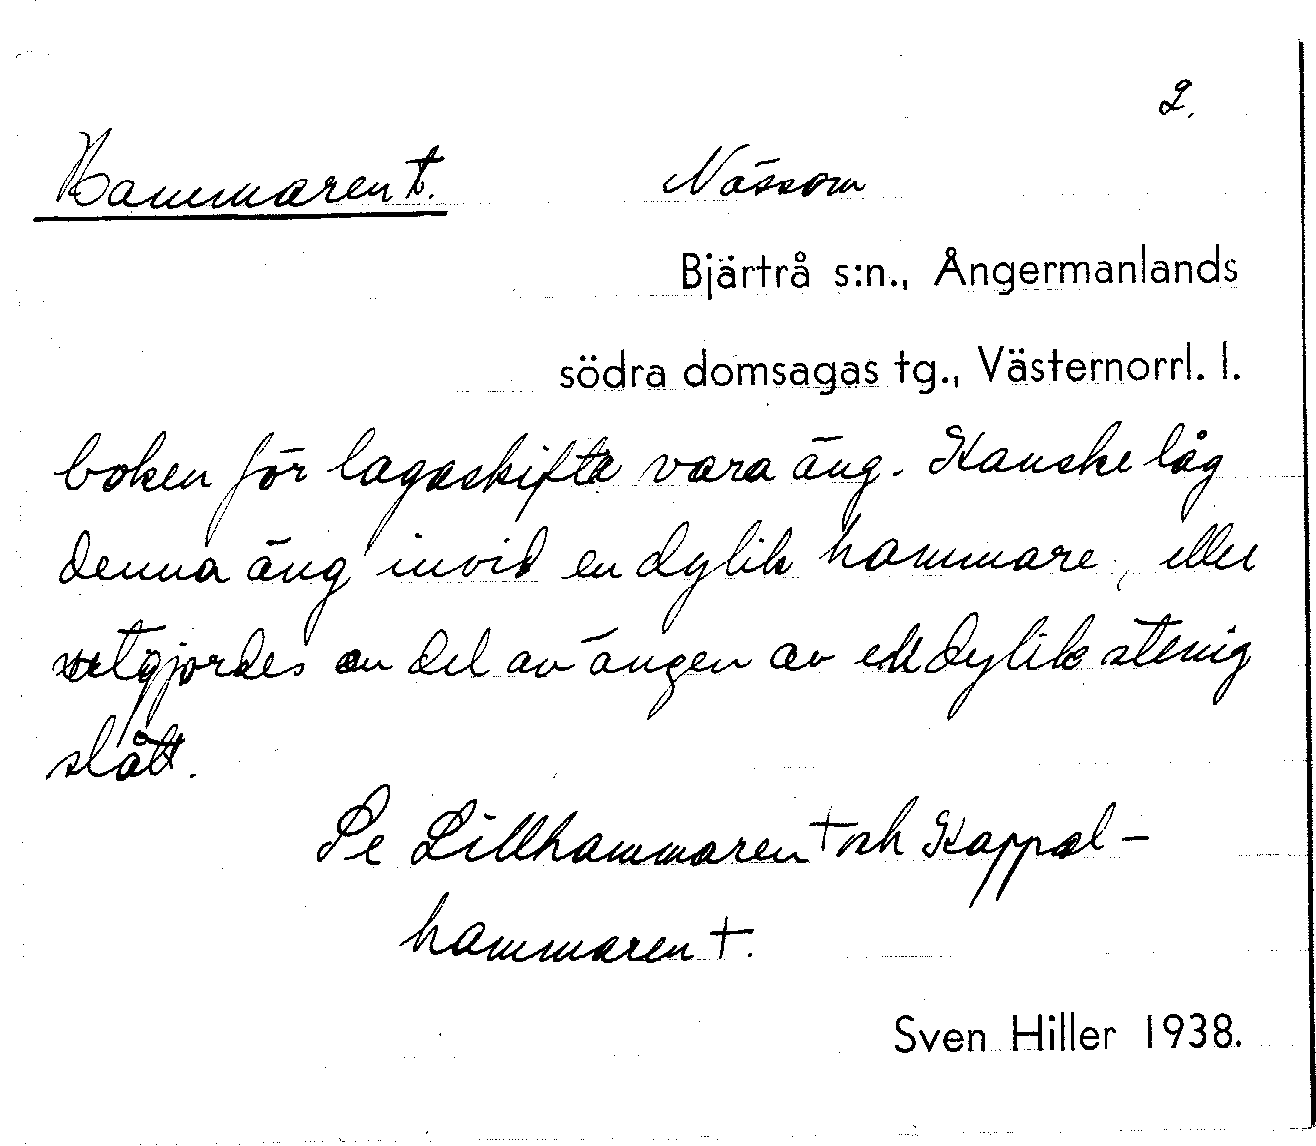 2.
Hammaren †. Nässom
Bjärtrå s:n., Ångermanlands
södra domsagas tg., Västernorrl. l.
boken för lagaskifte vara äng. Kanske låg
denna äng invid en dylik hammare, eller
utgjordes en del av ängen av en dylik stenig
slått.
Se Lillhammaren † och Kappal-
hammaren †.
Sven Hiller 1938.